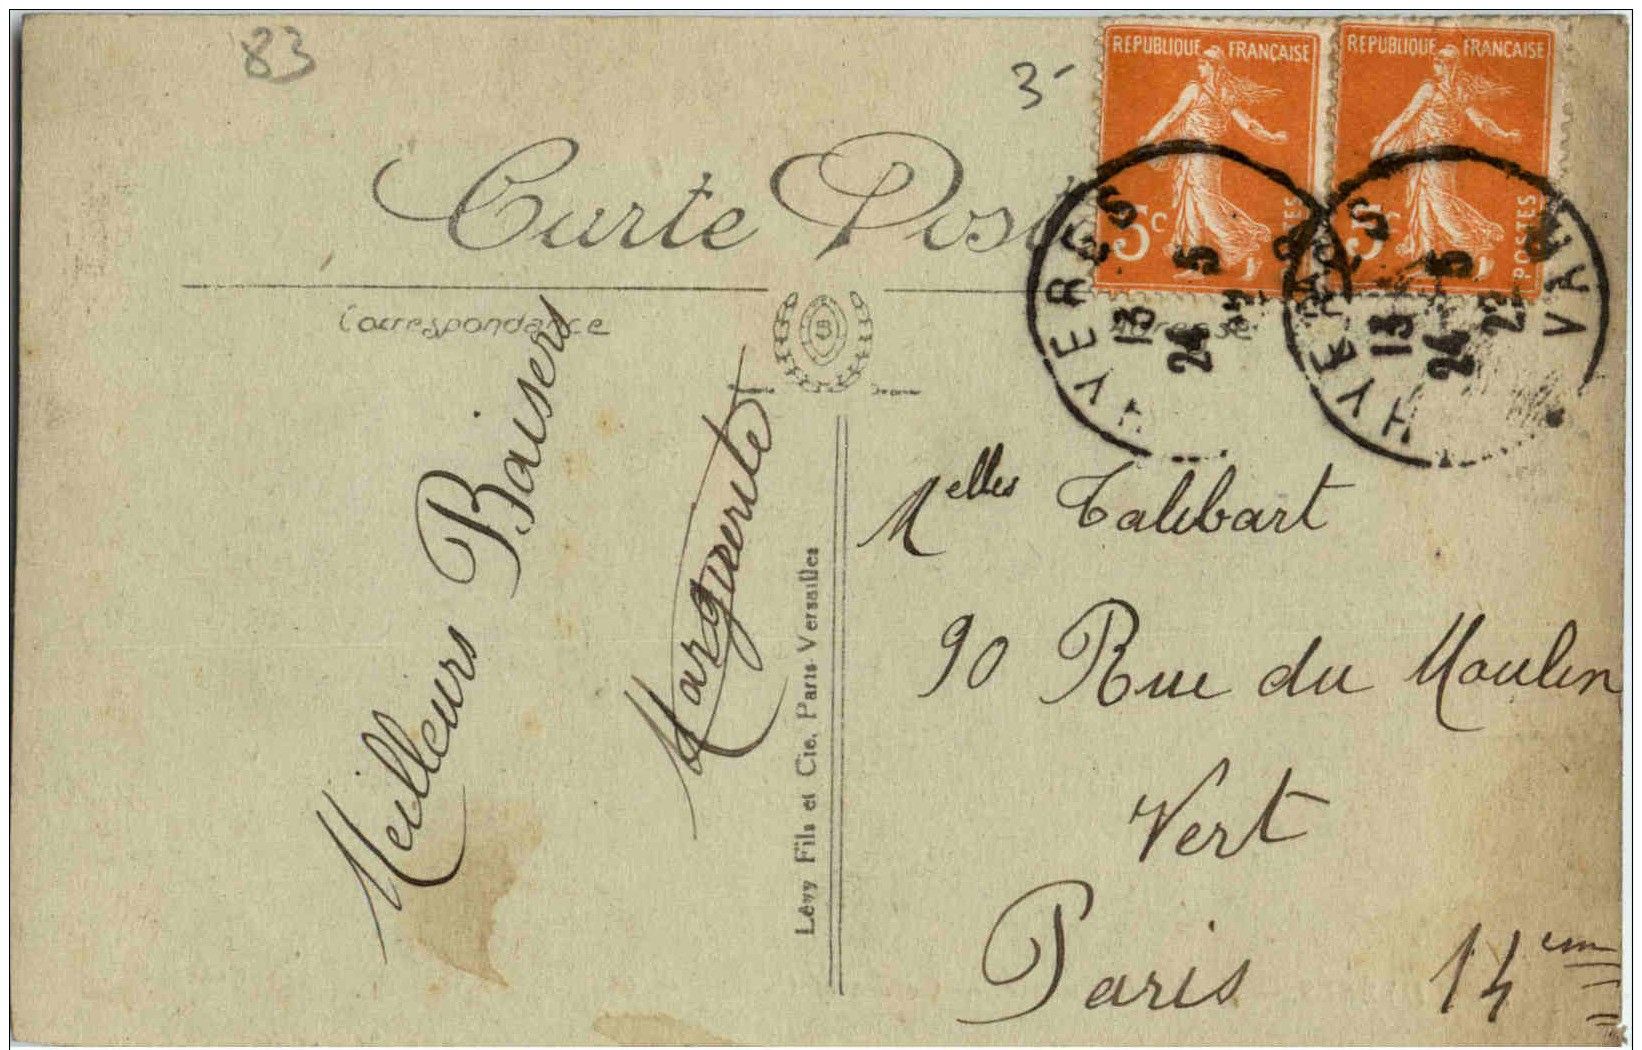 83
3-
REPUBLIQUE FRANÇAISE
REPUBLIQUE FRANÇAISE
5c
POSTES
HYERES
VAR
13
24 5
22
HYERES
VAR
13
24 5
22
Carte Post
Correspondance
Meilleurs Baisers
Marguerite
Lévy Fils et Cie, Paris-Versailles
Melles Talibart
90 Rue du Moulin
Vert
Paris 14em